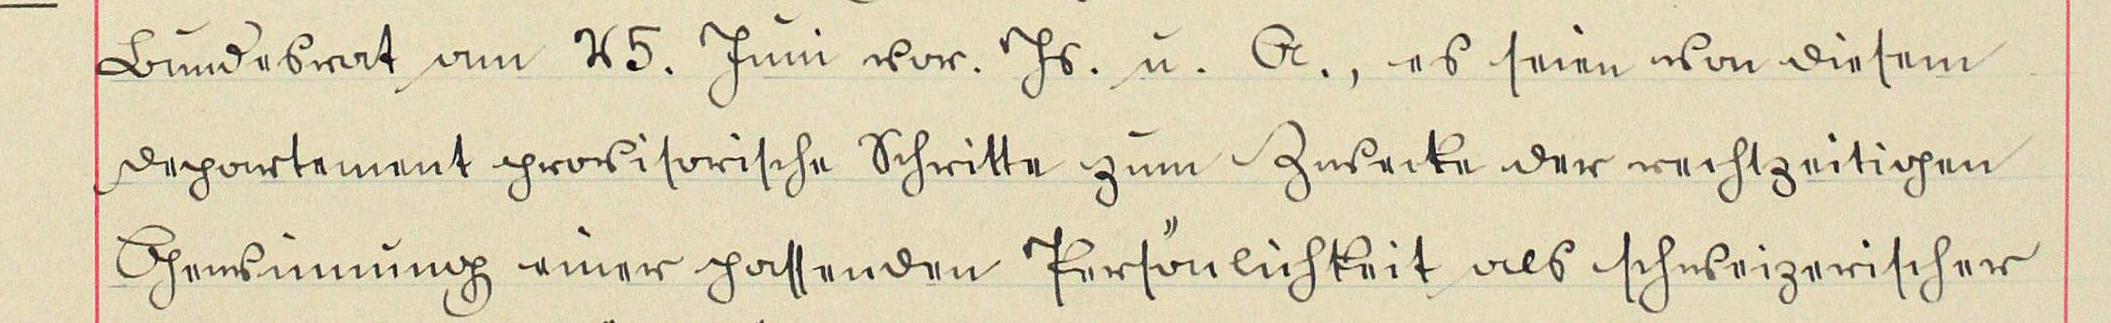 Bundesrat am 25. Juni vor. Js. u. A., es seien von diesem
Departement provisorische Schritte zum Zwecke der rechtzeitigen
Gewinnung einer passenden Persönlichkeit als schweizerischer